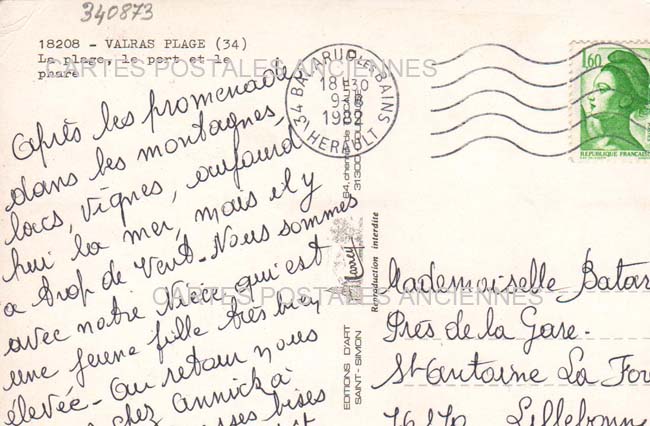 340873
18208 - VALRAS PLAGE (34)
La plage, le port et le
phare
CARTES POSTALES ANCIENNES
34 BALARUC LES BAINS
18H30
9-8
1982
HERAULT
1,60
REPUBLIQUE FRANCAISE
Après les promenades
dans les montagnes,
lacs, vignes, aujourd
hui la mer, mais il y
a trop de vent. Nous sommes
avec notre Nièce qui est
une jeune fille très bien
élevée - au retour nous
chez Annick à
bises
EDITIONS D'ART
SAINT-SIMON
larrey
Reproduction interdite
Mademoiselle Batar
Près de la Gare.
St Antoine La For
76170 Lillebonne
CARTES POSTALES ANCIENNES